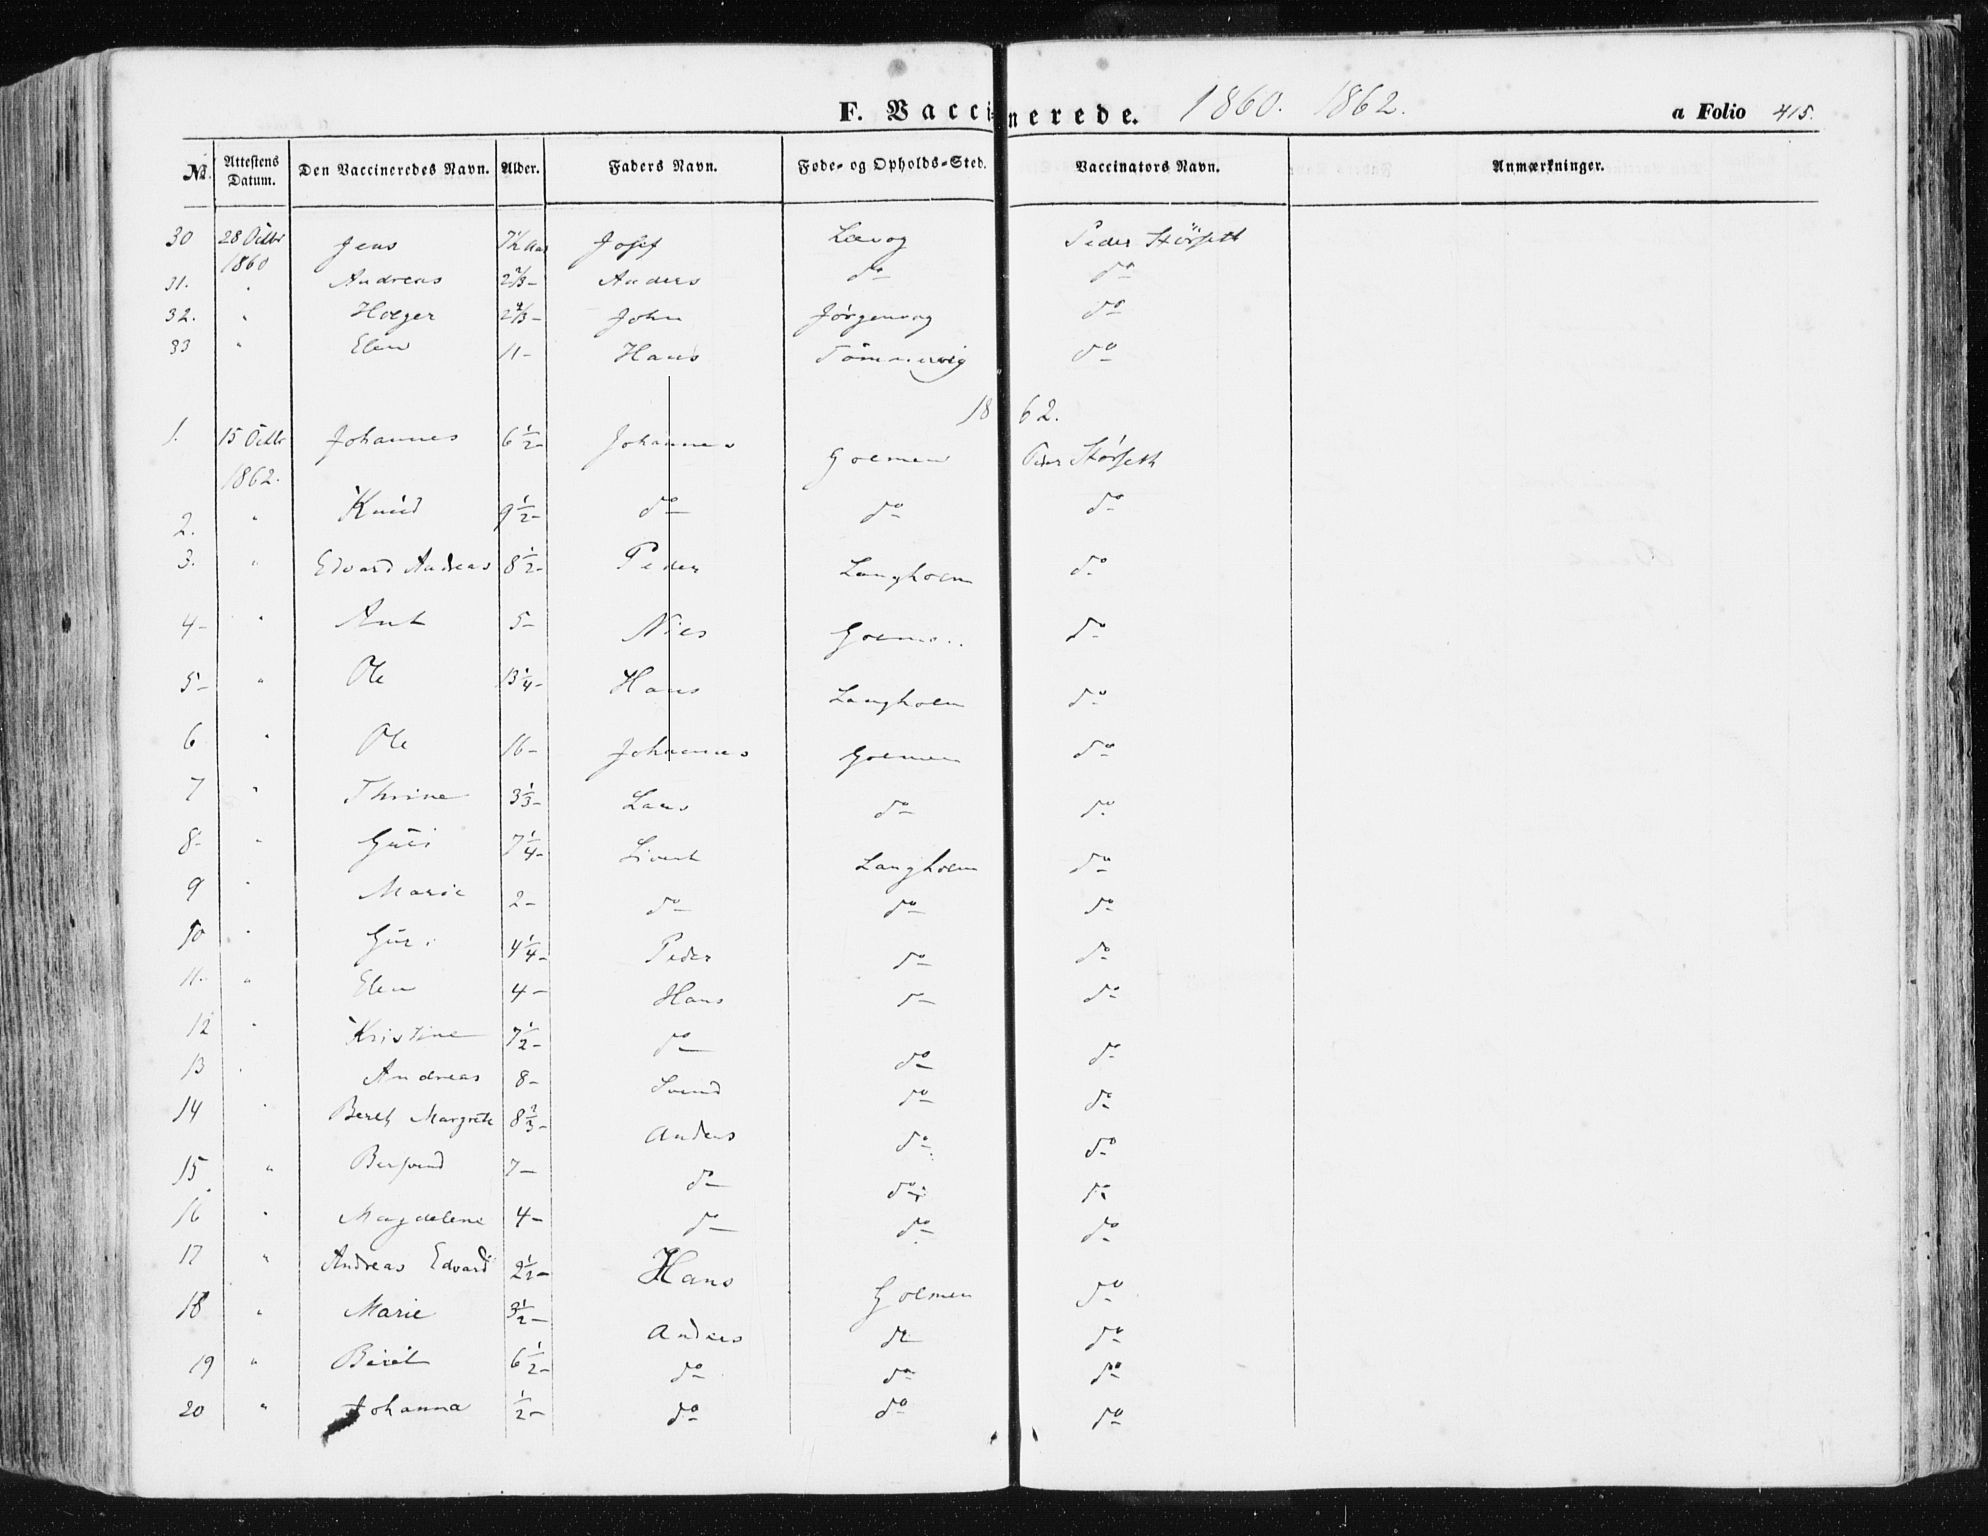 F. Vaccinerede. 1860. 1862. a Folio 415.
No. Attestens Datum. Den Vaccineredes Navn. Alder. Faders Navn. Føde- og Opholds-Sted. Vaccinators Navn. Anmærkninger.
30 28 Octbr 1860 Jens 7½ Aar Josef Lervog Peder Störseth
31. " Andreas Anders do do
32. " Holger John Jörgenvog do
33 " Elen 11- Hans Tömmervig do
1862.
1. 15 Octbr 1862. Johannes 6½- Johannes Golmen Peder Störseth
2. " Knud 9½- do do do
3. " Edvard Andreas 8½- Peder Langholm do
4- " 5- Nils do
5- " Ole 13¼- Hans Langholm do
6 " Ole 16- Johannes Golmen do
7 " Thrine 3⅓- Lars do do
8- " Guri 7¼- Sivert Langholm do
9 " Marie 2- do do do
10 " Guri 4¼- Peder do do
11. " Elen 4- Hans do do
12 " Kristine 7½- do do do
13 " Andreas 8- Svend do do
14 " Bereth Margrete 8⅔- Anders do do
15 " Bersvend 7- do do do
16 " Magdelene 4- do do do
17 " Andreas Edvard 2½- Hans Golmen do
18 " Marie 3½- Anders do do
19 " Berit 6½- do do do
20 " Johanna ½- do do do